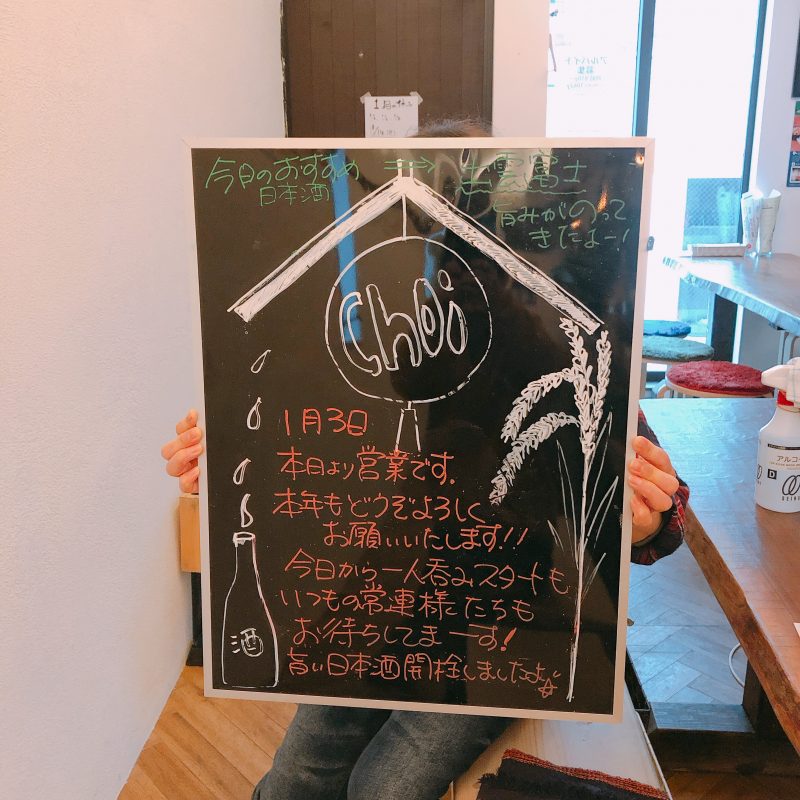 1月の休み
アルバイト
募集
今日のおすすめ
日本酒
⇒ 出雲富士
旨みがのって
きたよー!
choi
1月3日
本日より営業です。
本年もどうぞよろしく
お願いいたします!!
今日から一人呑みスタートも
いつもの常連様たちも
お待ちしてまーす!
旨い日本酒開栓しましたよ☆
酒
アルコー
D